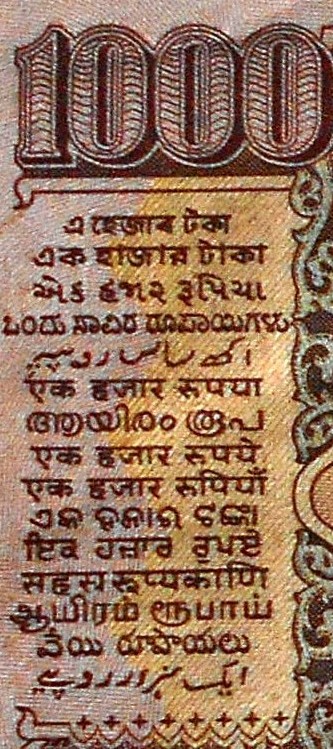 1000
এ হেজাৰ টকা
এক হাজার টাকা
એક હજાર રૂપિયા
ಒಂದು ಸಾವಿರ ರೂಪಾಯಿಗಳು
एक हजार रुपया
ആയിരം രൂപ
एक हजार रुपये
एक हजार रुपियाँ
ଏକ ହଜାର ଟଙ୍କା
ਇਕ ਹਜ਼ਾਰ ਰੁਪਏ
सहस्रं रूप्यकाणि
ஆயிரம் ரூபாய்
వేయి రూపాయలు
ایک ہزار روپیے